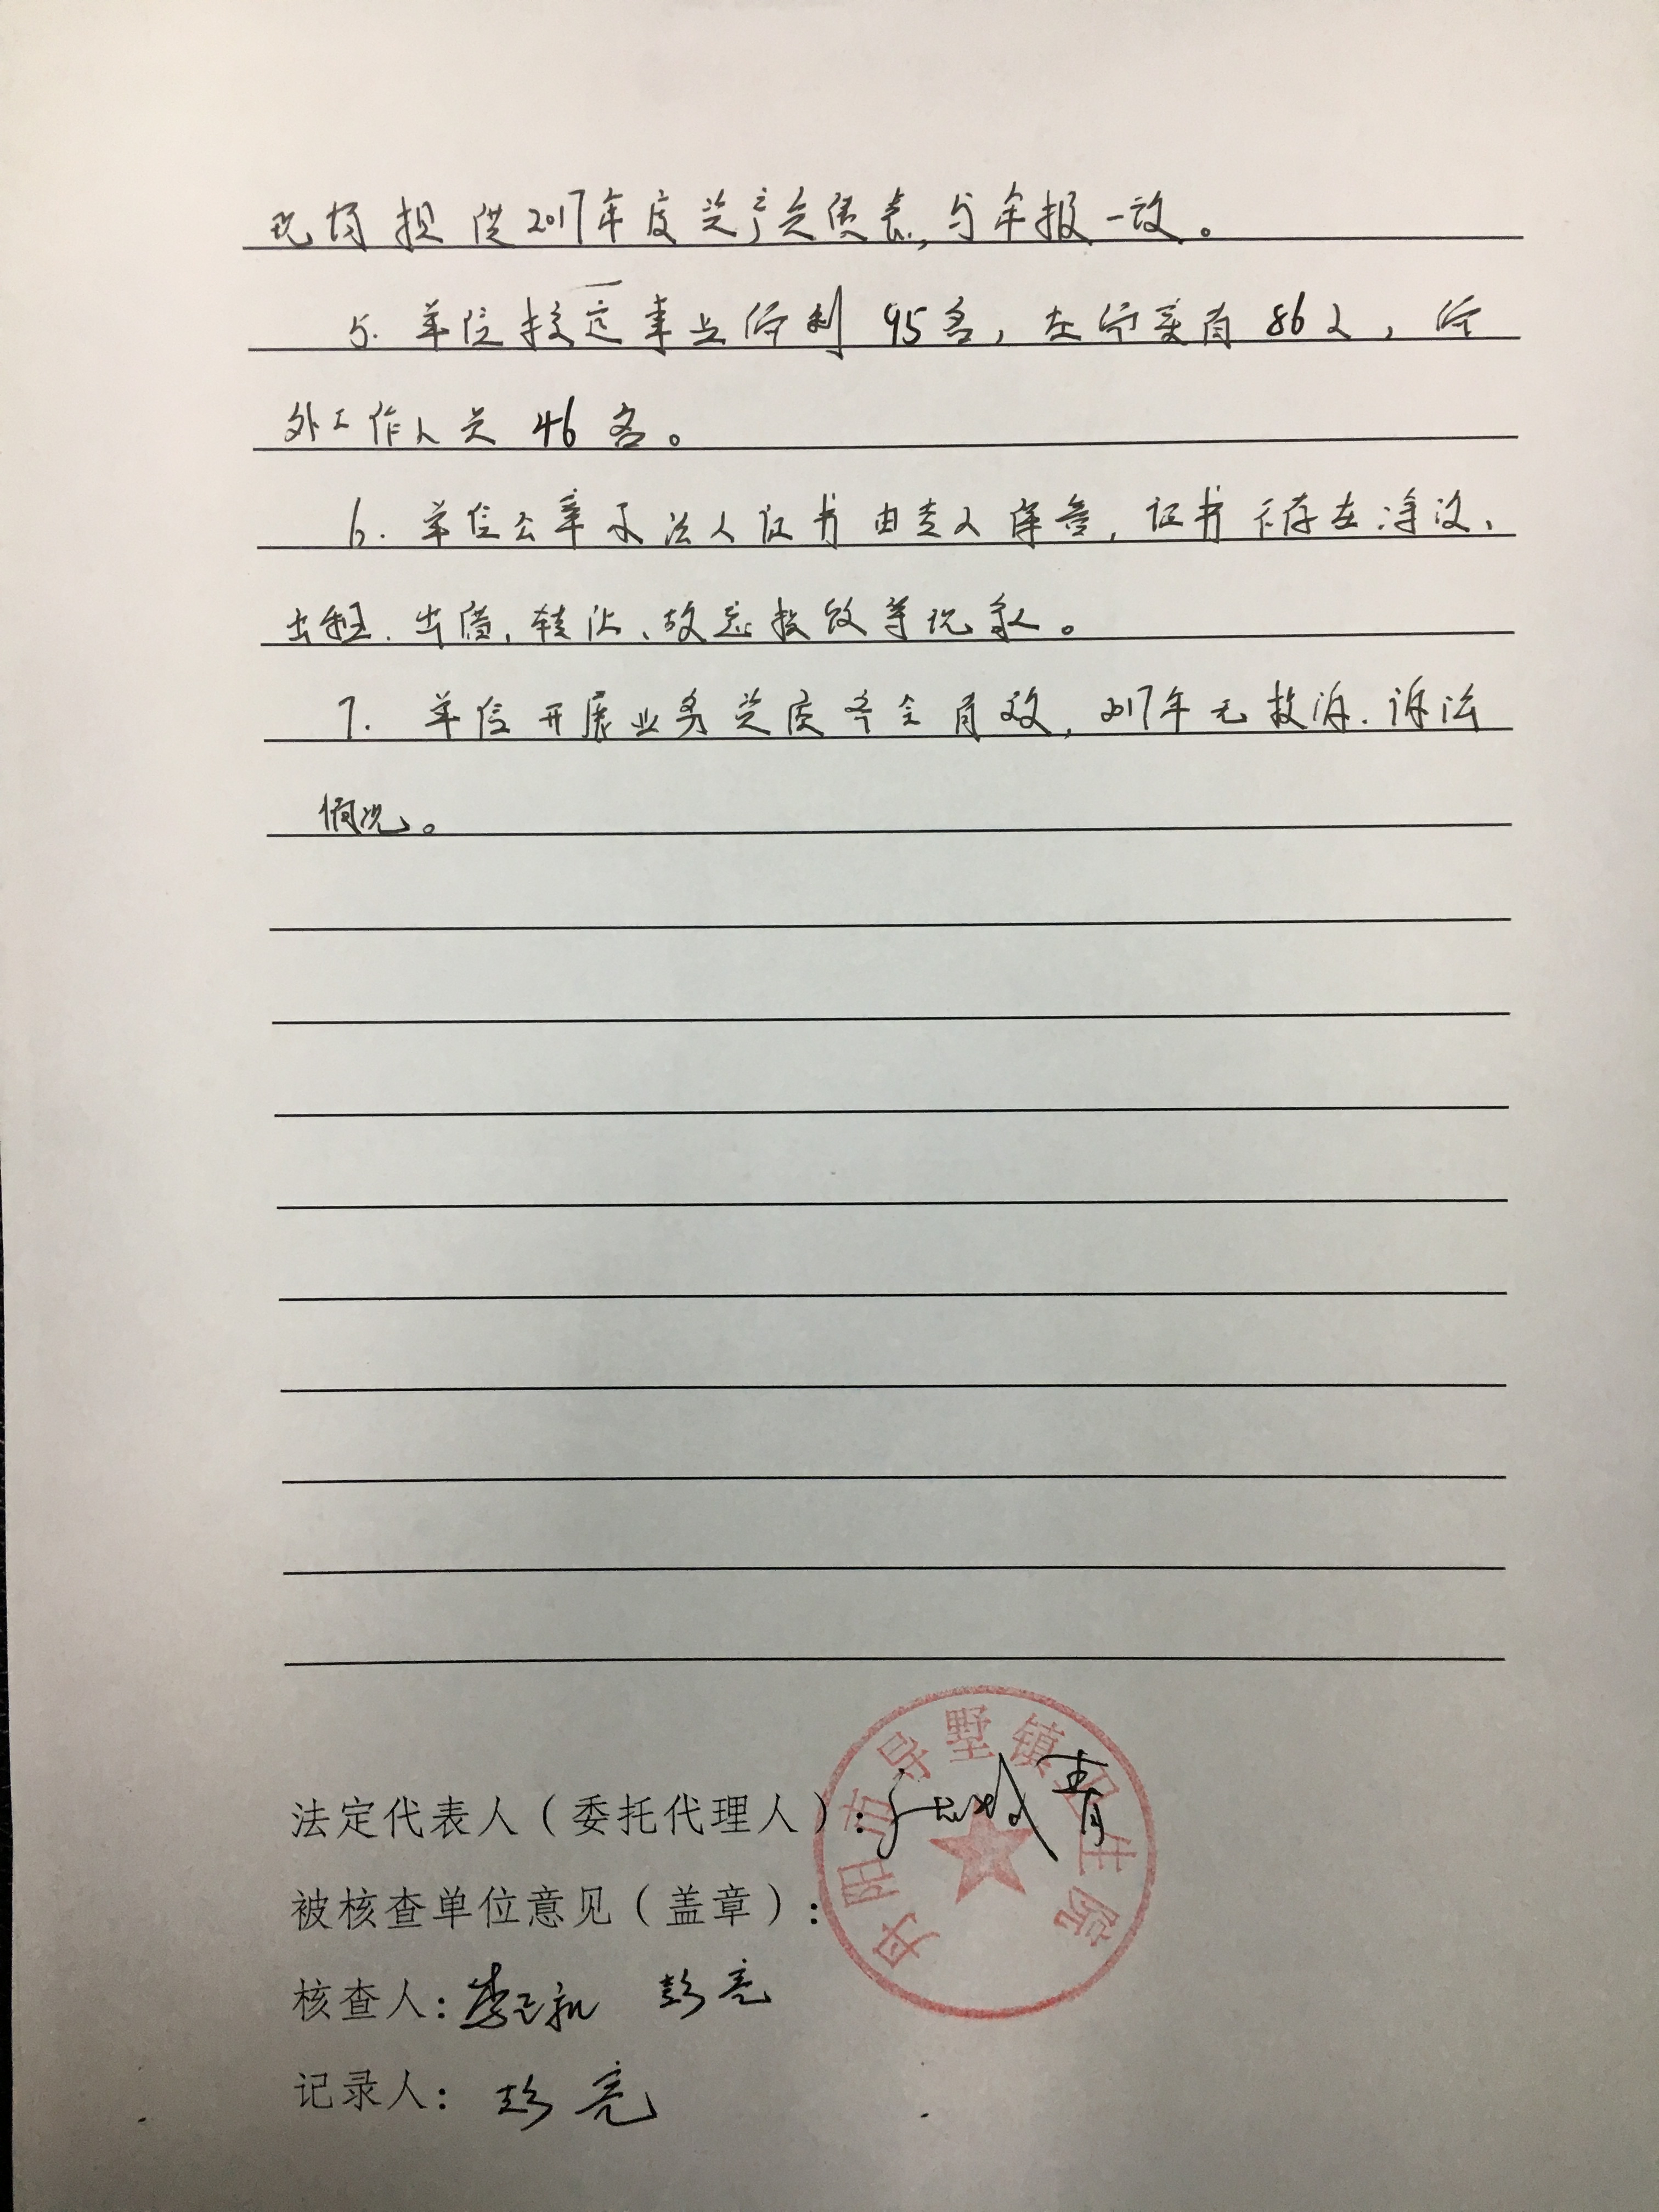 现场提供2017年度资产负债表,与年报一致。
5. 单位核定事业编制 95名, 在编实有 86人, 编
外工作人员 46 名。
6. 单位公章及法人证书由专人保管, 证书不存在涂改、
出租、出借、转让、故意损毁等现象。
7. 单位开展业务资质齐全有效, 2017年无投诉、诉讼
情况。
丹阳市导墅镇卫生院
法定代表人（委托代理人）: 青
被核查单位意见（盖章）:
核查人: 彭亮
记录人: 彭亮